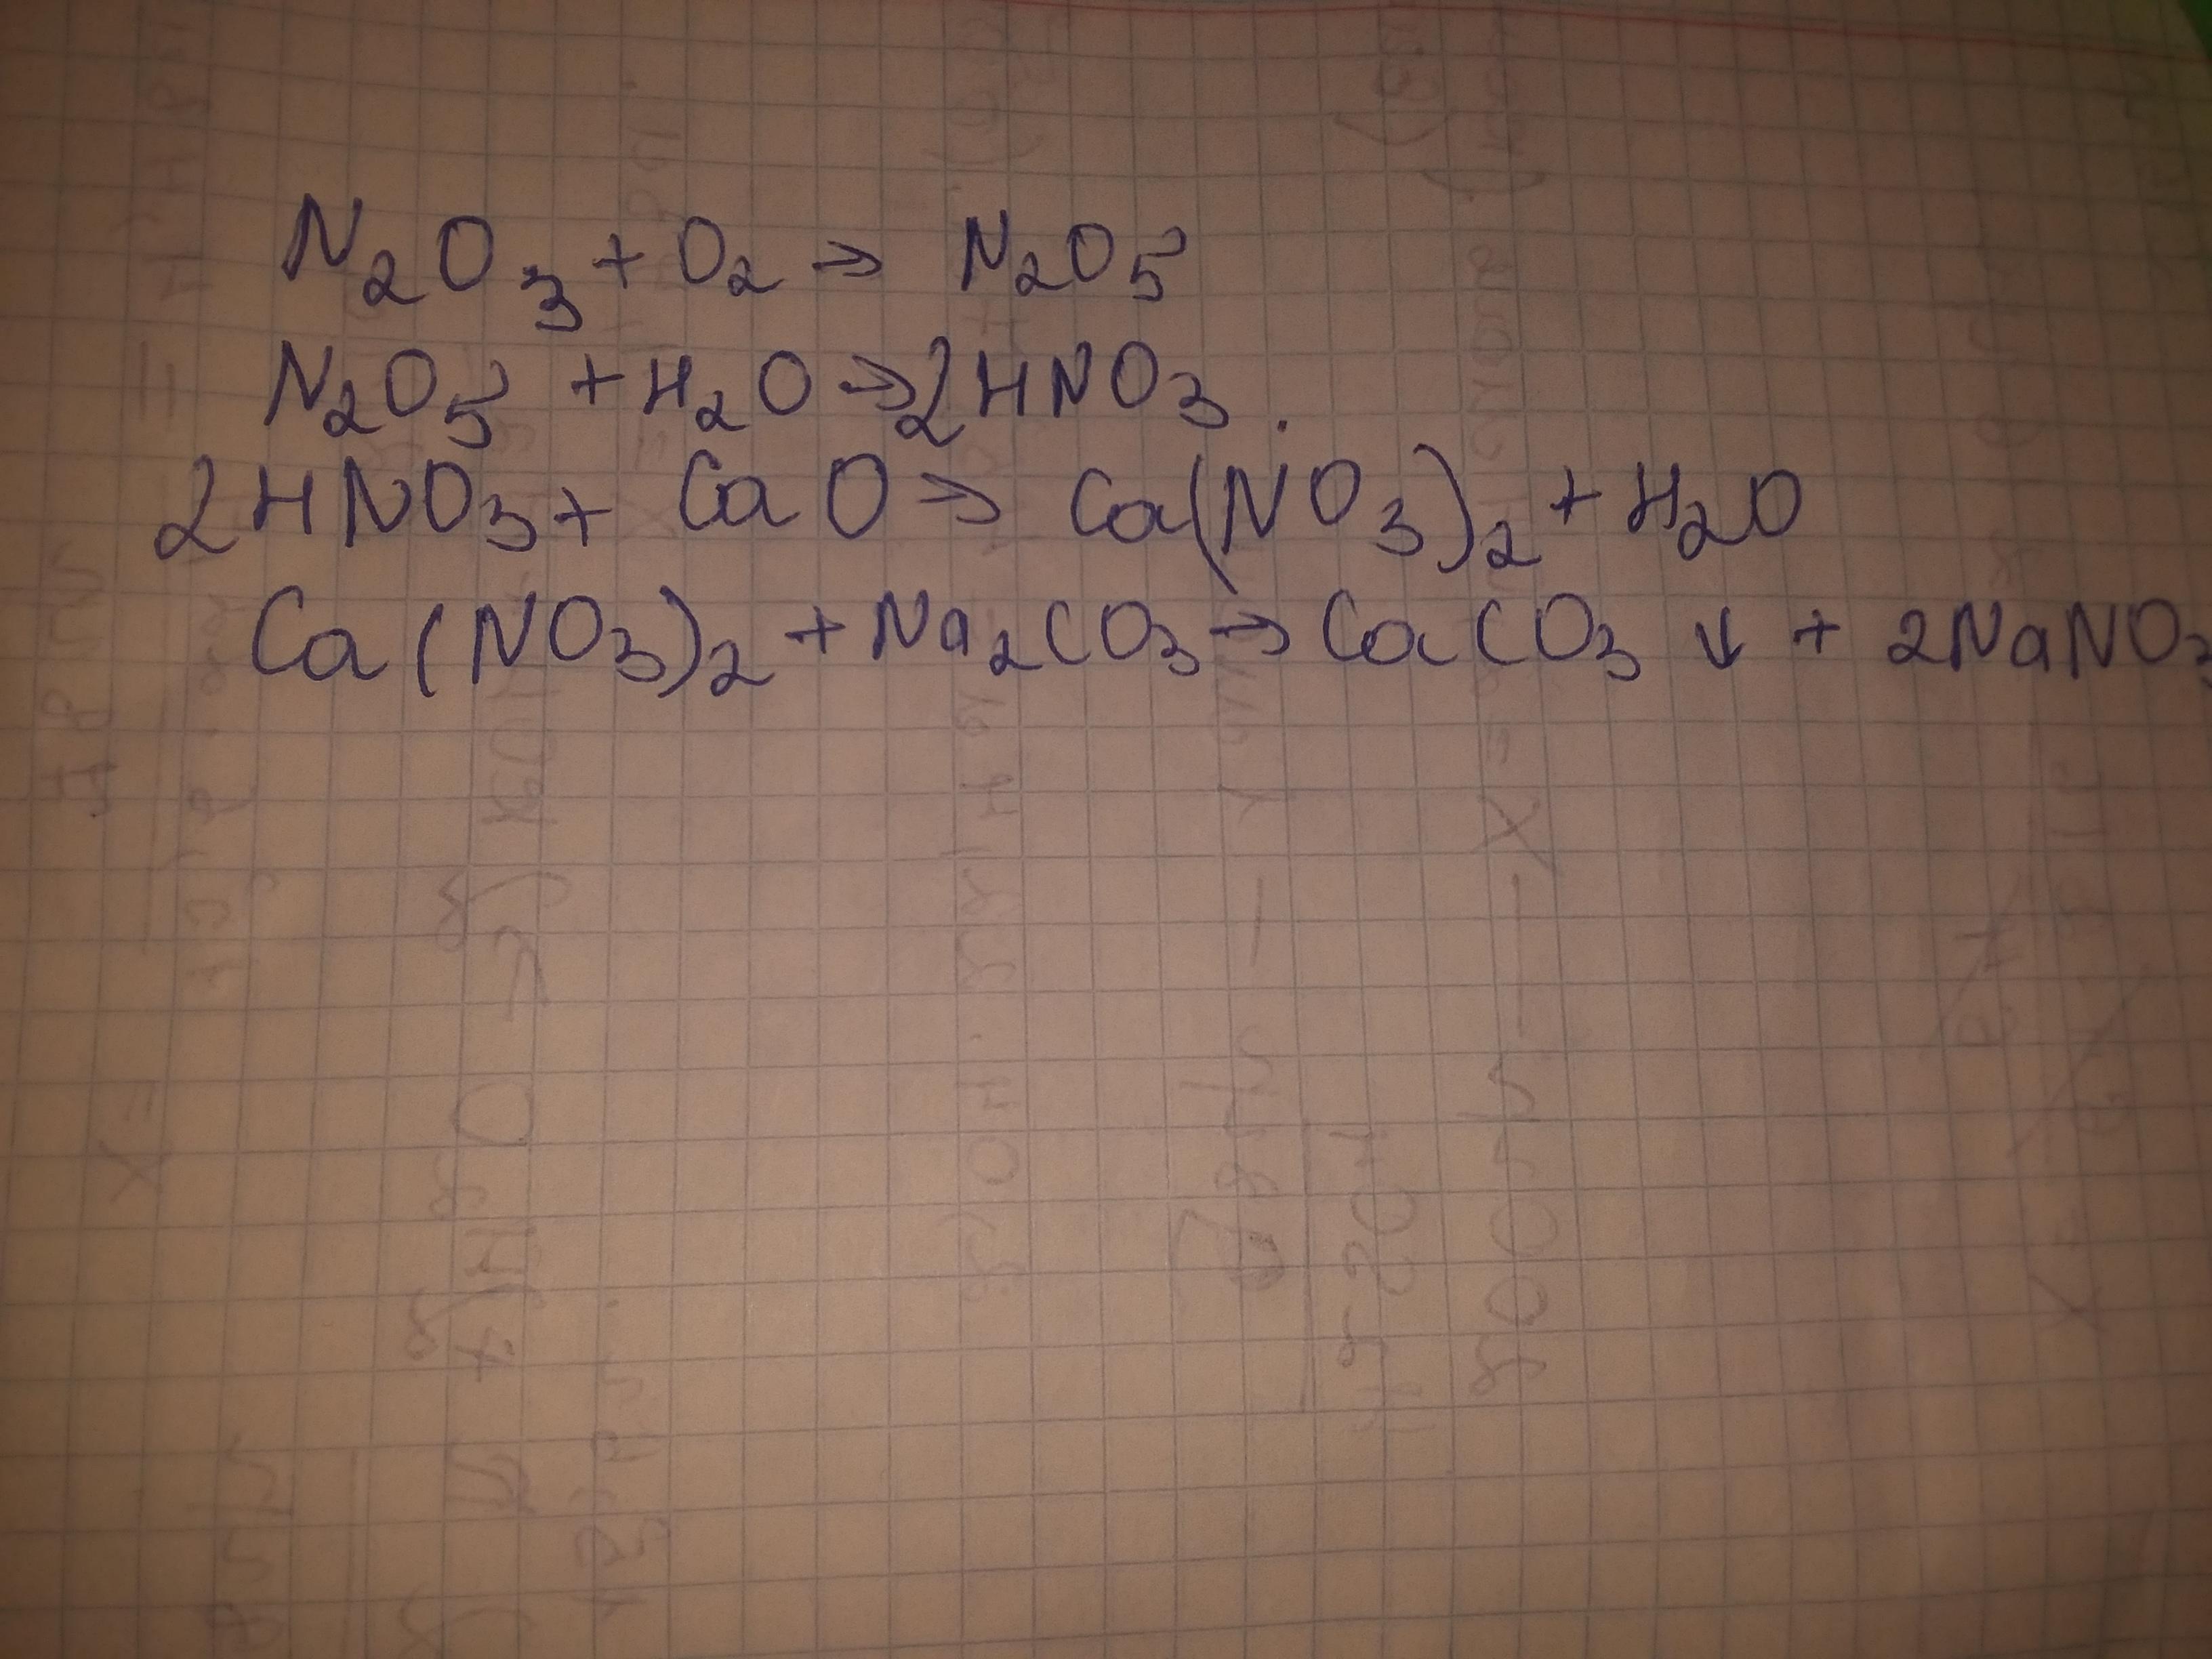 N₂O₃ + O₂ → N₂O₅
N₂O₅ + H₂O → 2HNO₃.
2HNO₃ + CaO → Ca(NO₃)₂ + H₂O
Ca(NO₃)₂ + Na₂CO₃ → CaCO₃ ↓ + 2NaNO₃